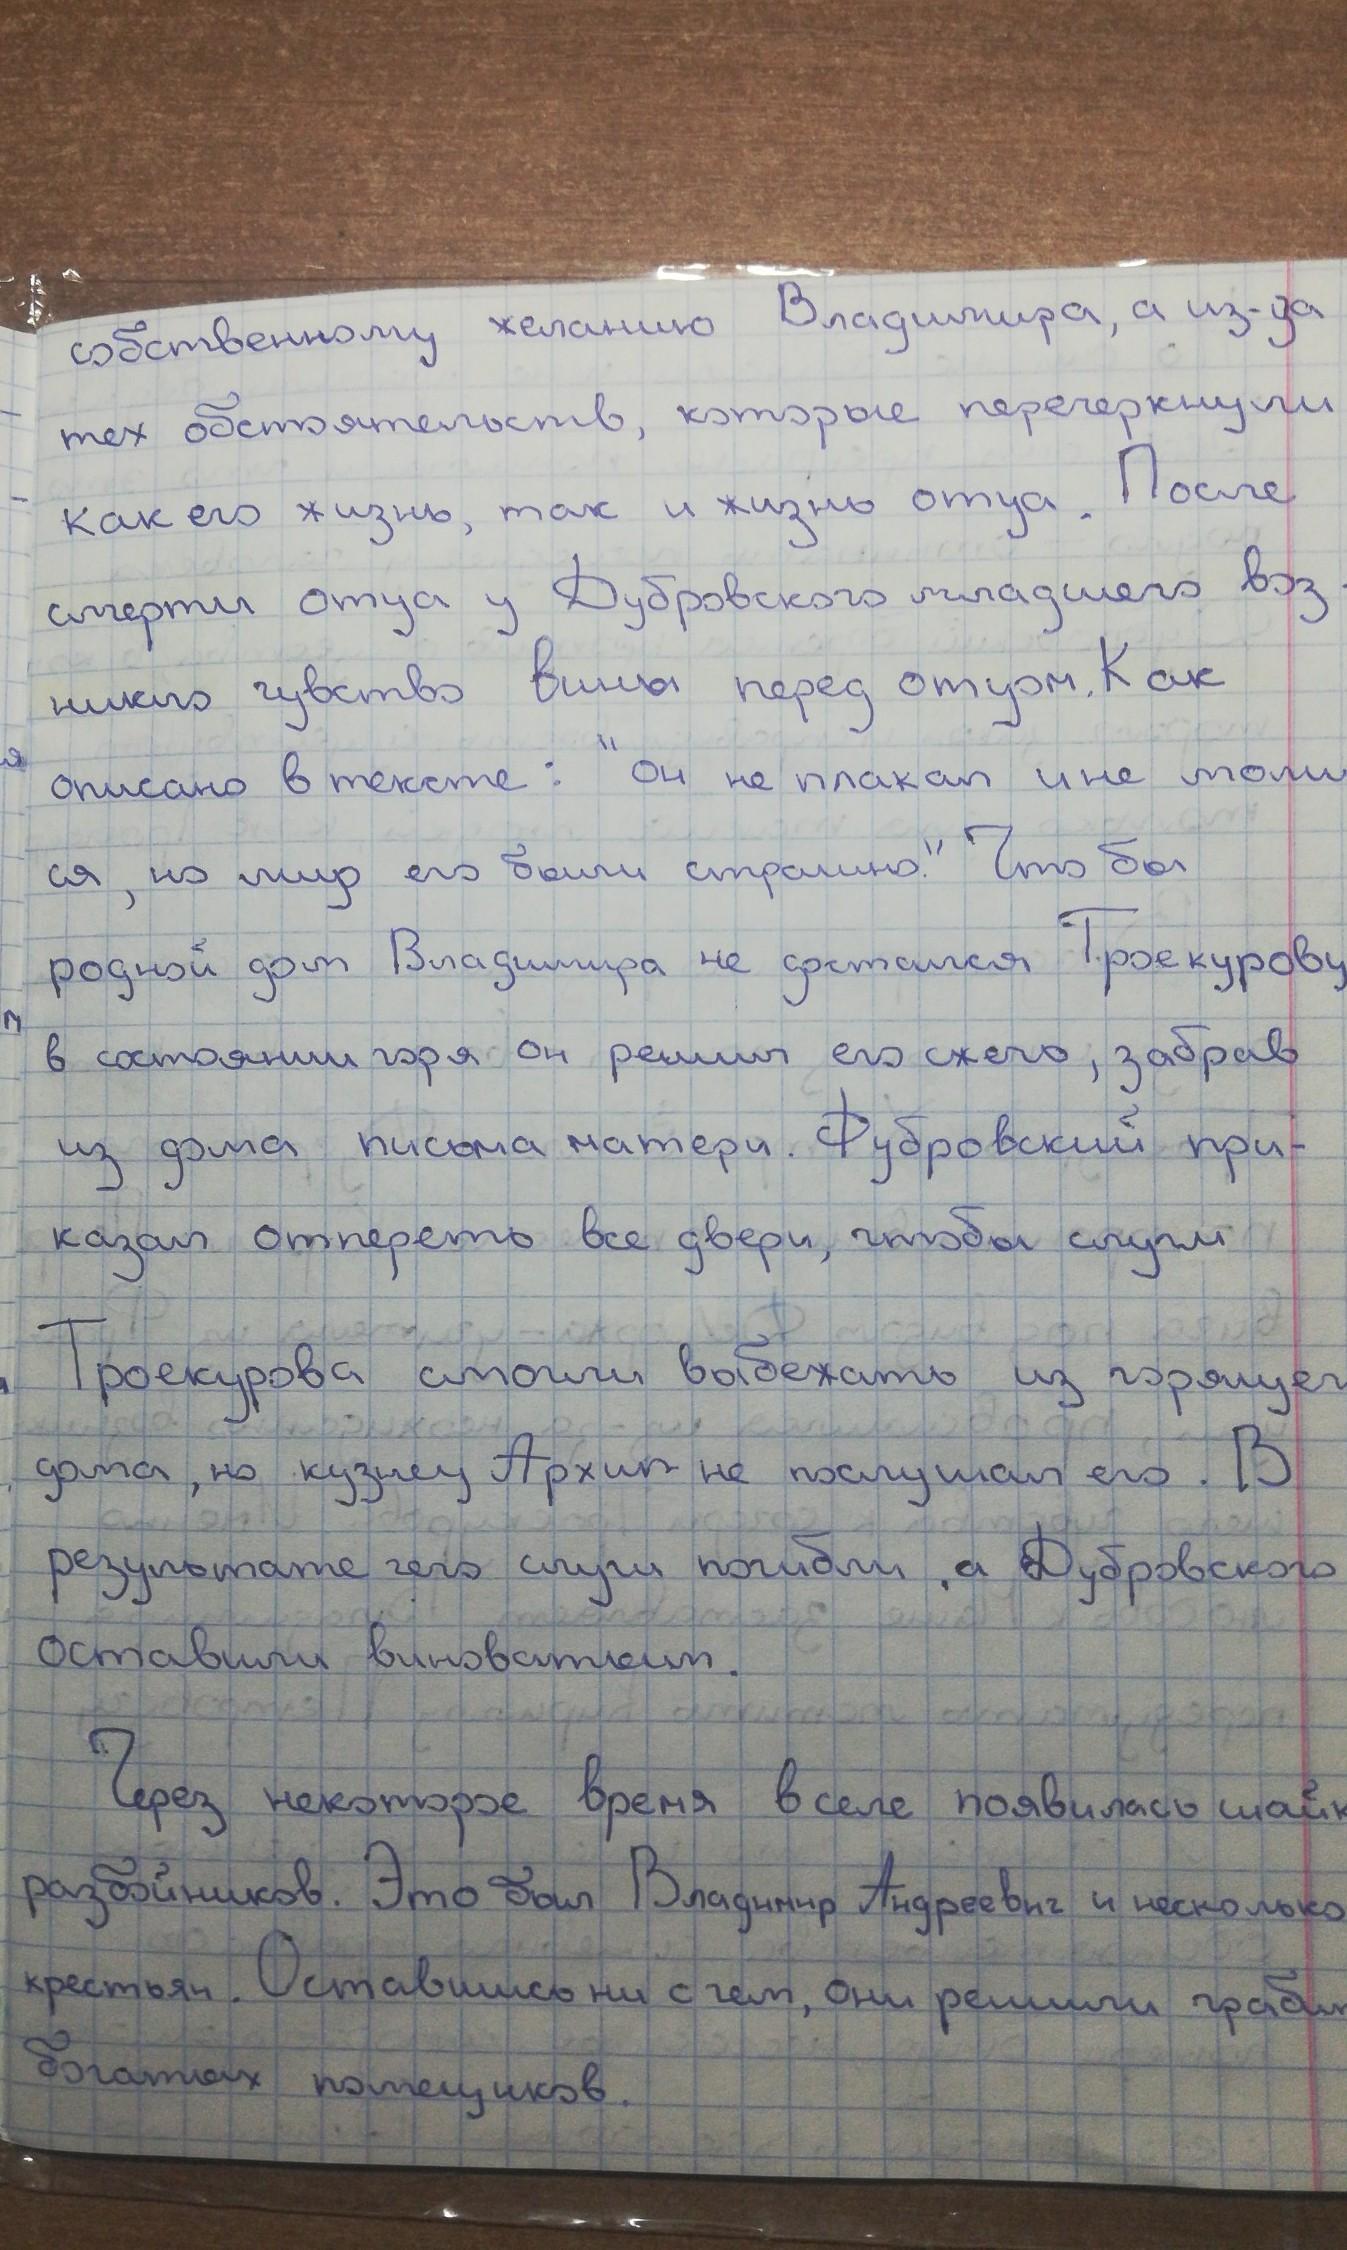 собственному желанию Владимира, а из-за
тех обстоятельств, которые перечеркнули
как его жизнь, так и жизнь отца. После
смерти отца у Дубровского младшего воз-
никло чувство вины перед отцом. Как
описано в тексте: "он не плакал и не моли
ся, но лицо его были страшно." Что бы
родной дом Владимира не достался Троекурову
в состоянии горя он решил его сжечь, забрав
из дома письма матери. Дубровский при-
казал отпереть все двери, чтобы слуги
Троекурова смогли выбежать из горящег
дома, но кузнец Архип не послушал его. В
результате чего слуги погибли, а Дубровского
оставили виноватым.
Через некоторое время в селе появилась шайк
разбойников. Это был Владимир Андреевич и несколько
крестьян. Оставшись ни с чем, они решили грабит
богатых помещиков.